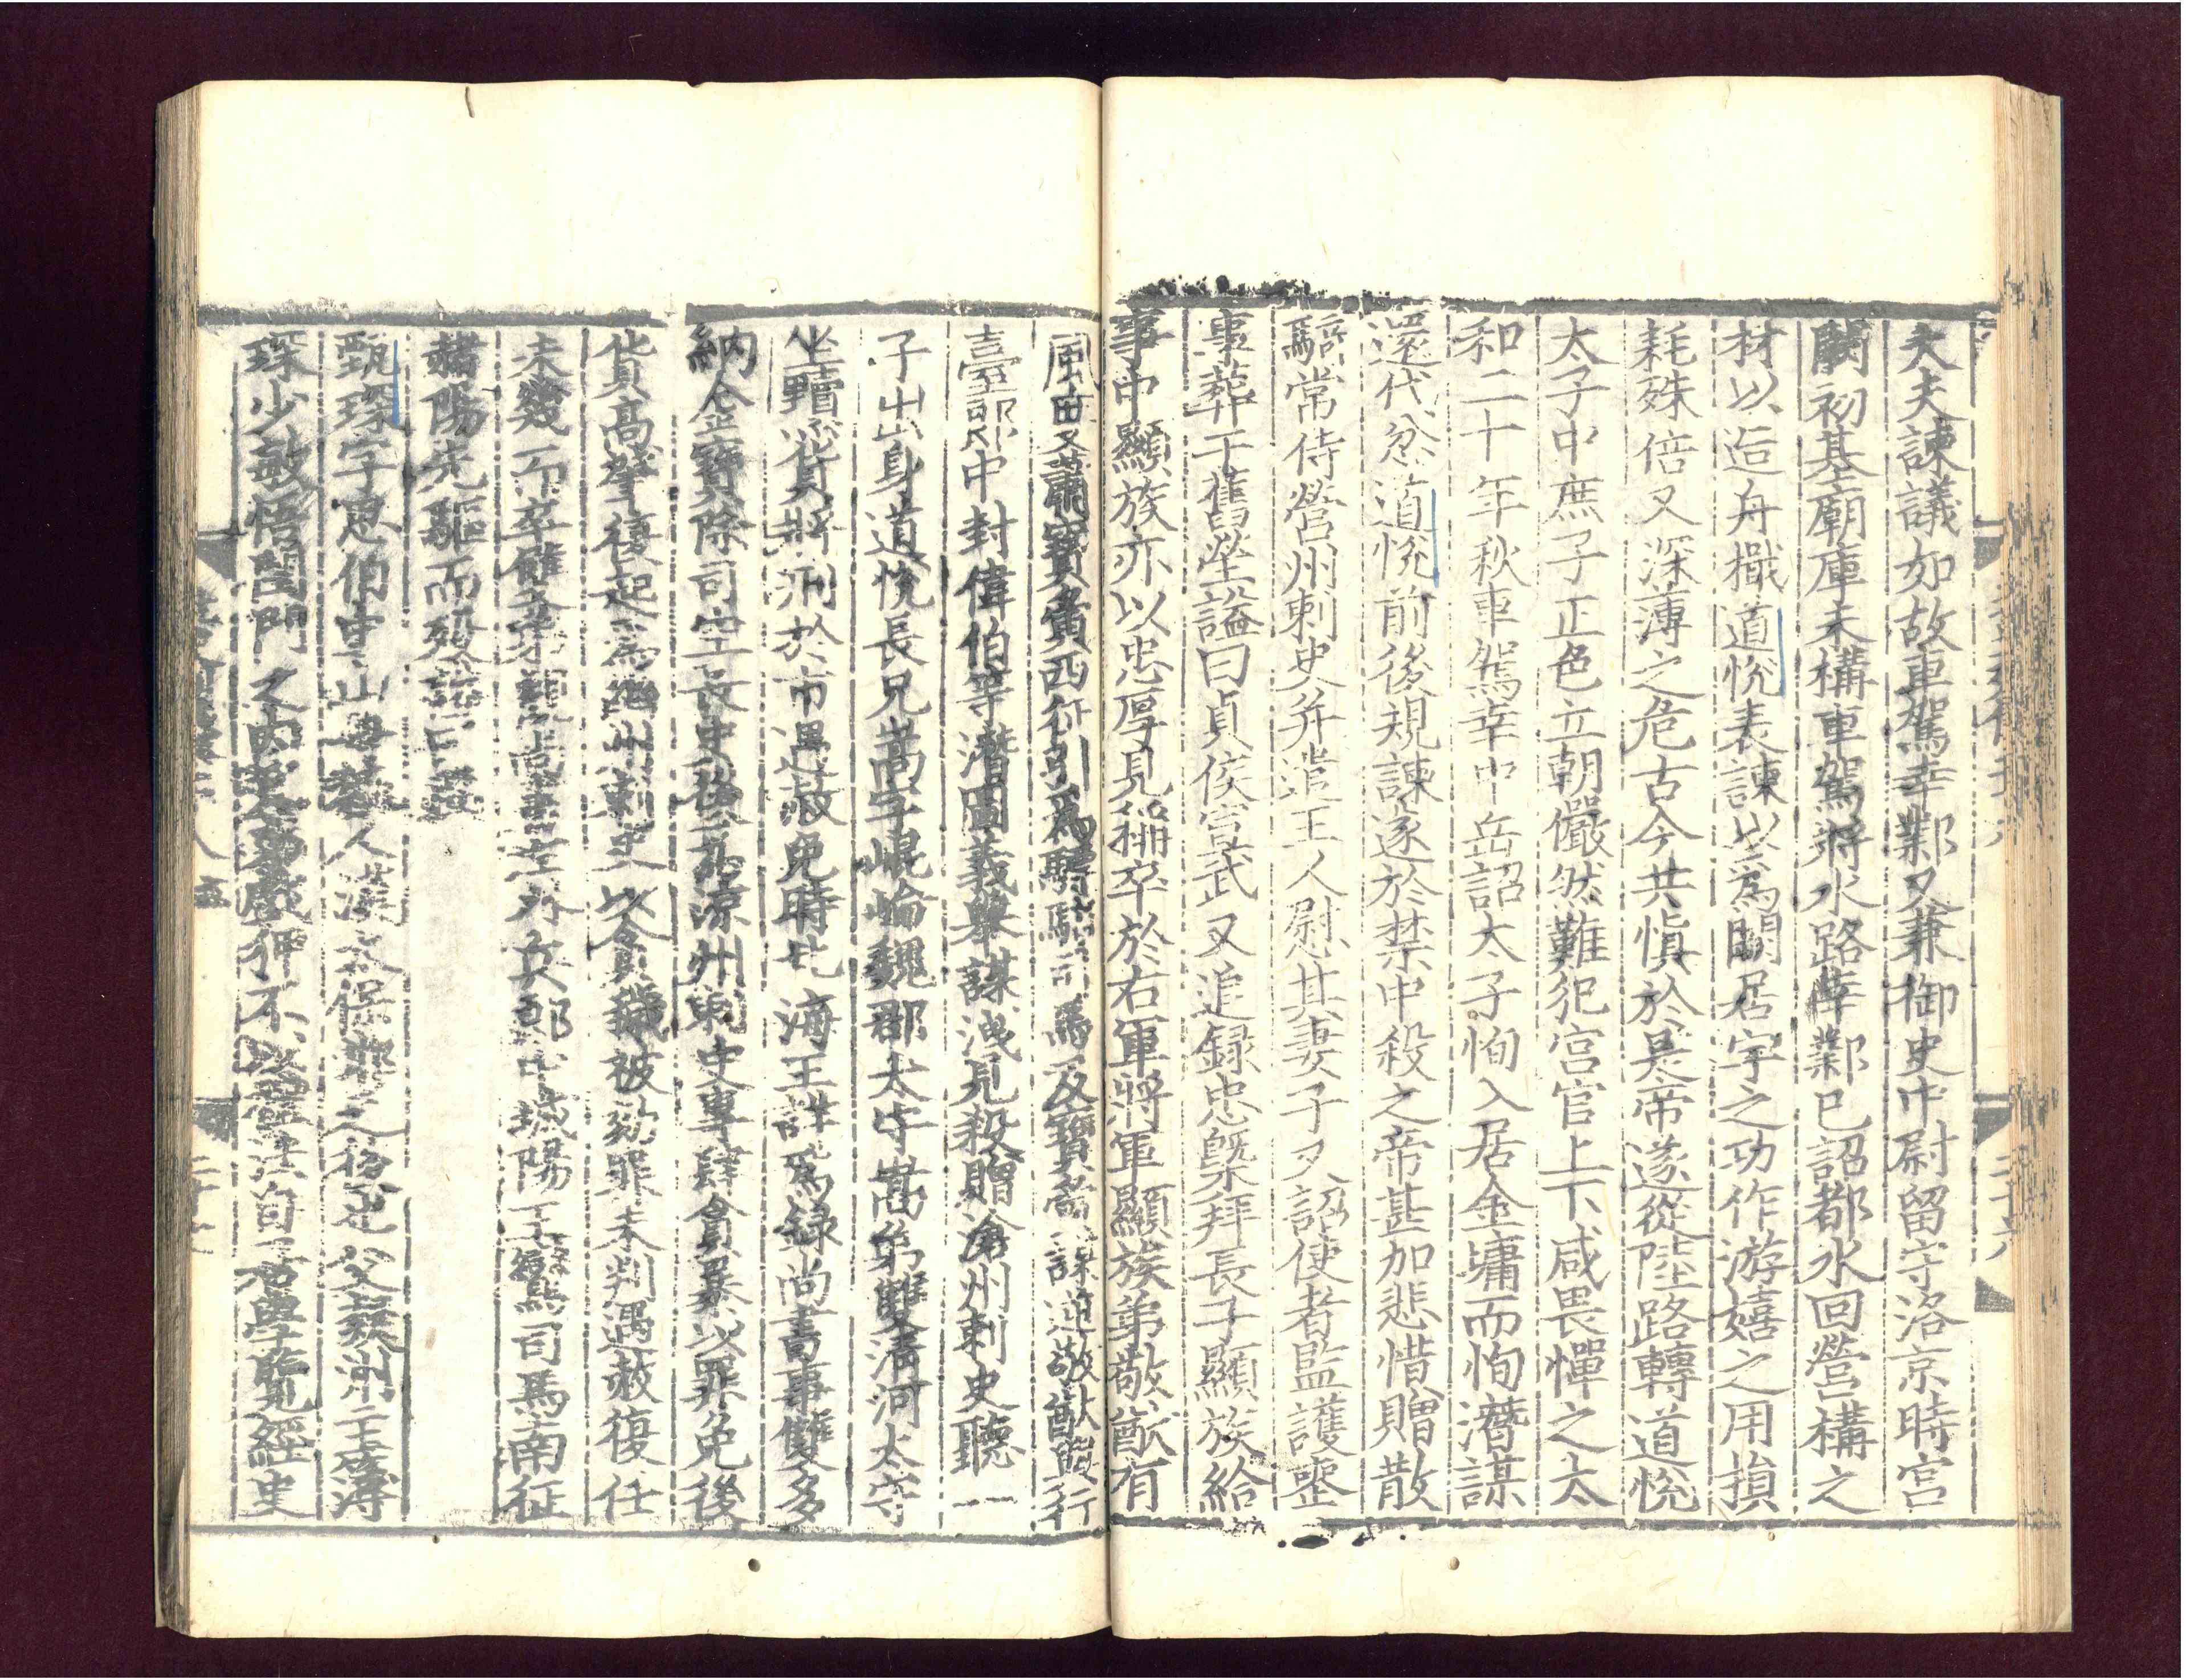 大夫諫議如故車駕幸鄴又兼御史中尉留守洛京時宮
闕初基廟庫未構車駕將水路幸鄴已詔都水回營構之
材以造舟檝道悅表諫以為闕居宇之功作游嬉之用損
耗殊倍又深薄之危古今共慎於是帝遂從陸路轉道悅
太子中庶子正色立朝儼然難犯宮官上下咸畏憚之太
和二十年秋車駕幸中岳詔太子恂入居金墉而恂潛謀
還代忿道悅前後規諫遂於禁中殺之帝甚加悲惜贈散
騎常侍營州刺史并遣王人慰其妻子又詔使者監護喪
事葬于舊塋諡曰貞侯宣武又追録忠槩拜長子顯族給
事中顯族亦以忠厚見稱卒於右軍將軍顯族弟敬猷有
風度又蕭寶夤西征引為驃騎司馬及寶夤謀逆敬猷與行
臺郎中封偉伯等潛圖義舉謀洩見殺贈滄州刺史聽一
子出身道悅長兄嵩字崐崘魏郡太守嵩弟雙清河太守
坐黷貨將刑於市遇赦免時北海王詳為録尚書事雙多
納金寶除司空長史後為涼州刺史專肆貪暴以罪免後
貨高肇復起為幽州刺史以貪穢被劾罪未判遇赦復任
未幾而卒雙弟觀尚書左外兵郎中城陽王鸞司馬南征
赭陽先驅而歿諡曰閔
甄琛字思伯中山毋極人漢太保邯之後也父凝州主簿
琛少敏悟閨門之內兄弟戲狎不以禮法自居學覽經史